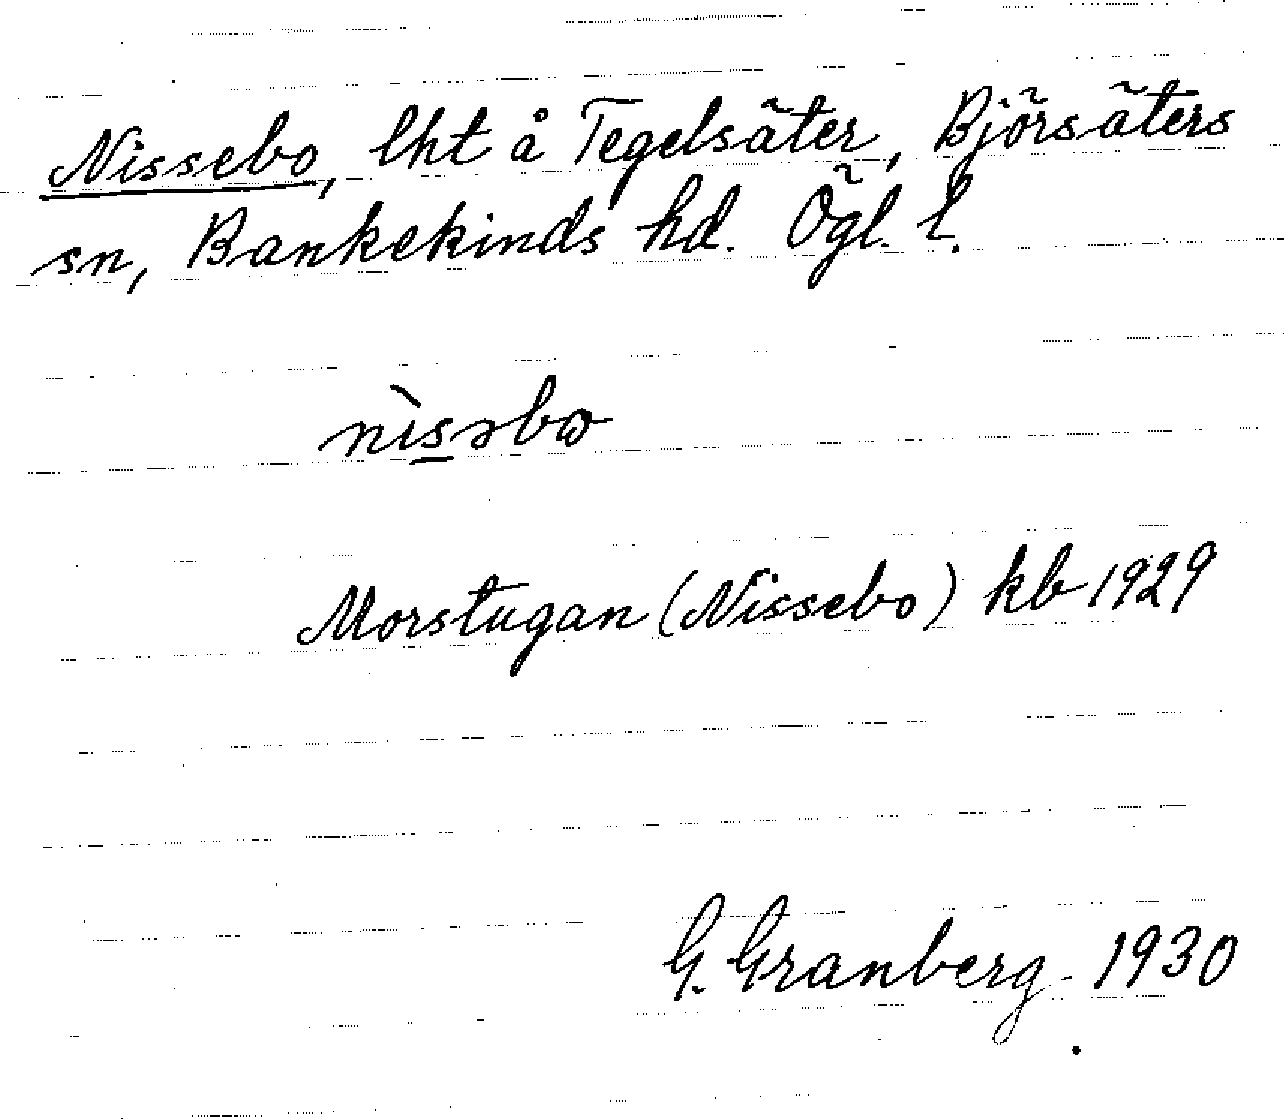 Nissebo, lht å Tegelsäter, Björsäters
sn, Bankekinds hd. Ögl. l.
nìs̲əbɷ
Morstugan (Nissebo) kb 1929
G. Granberg 1930